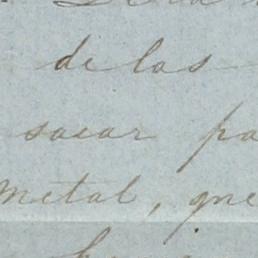 de las
sacar pa
metal, que